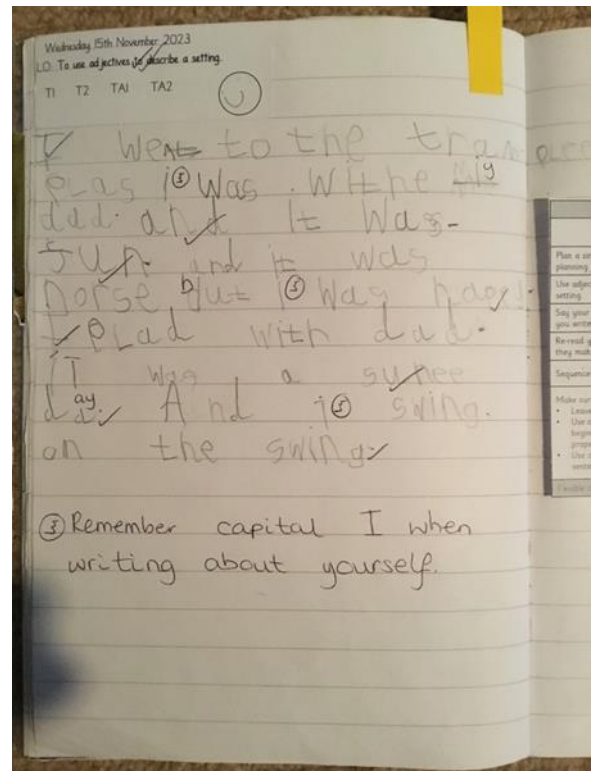 Wednesday 15th November 2023
L.O. To use adjectives to describe a setting.
T1 T2 TA1 TA2
I went to the
plas i ③ was. withe my
dad. and it was.
fun. and it was
but i ③ was
with dad.
iT was a sunee
day. And i ③ swing.
on the swing
③ Remember capital I when
writing about yourself.
Plan a
planning
Use adje
setting
Say your
you write
Re-read y
they mak
Sequence
Make sure
• Leave
• Use a
begin
prope
• Use c